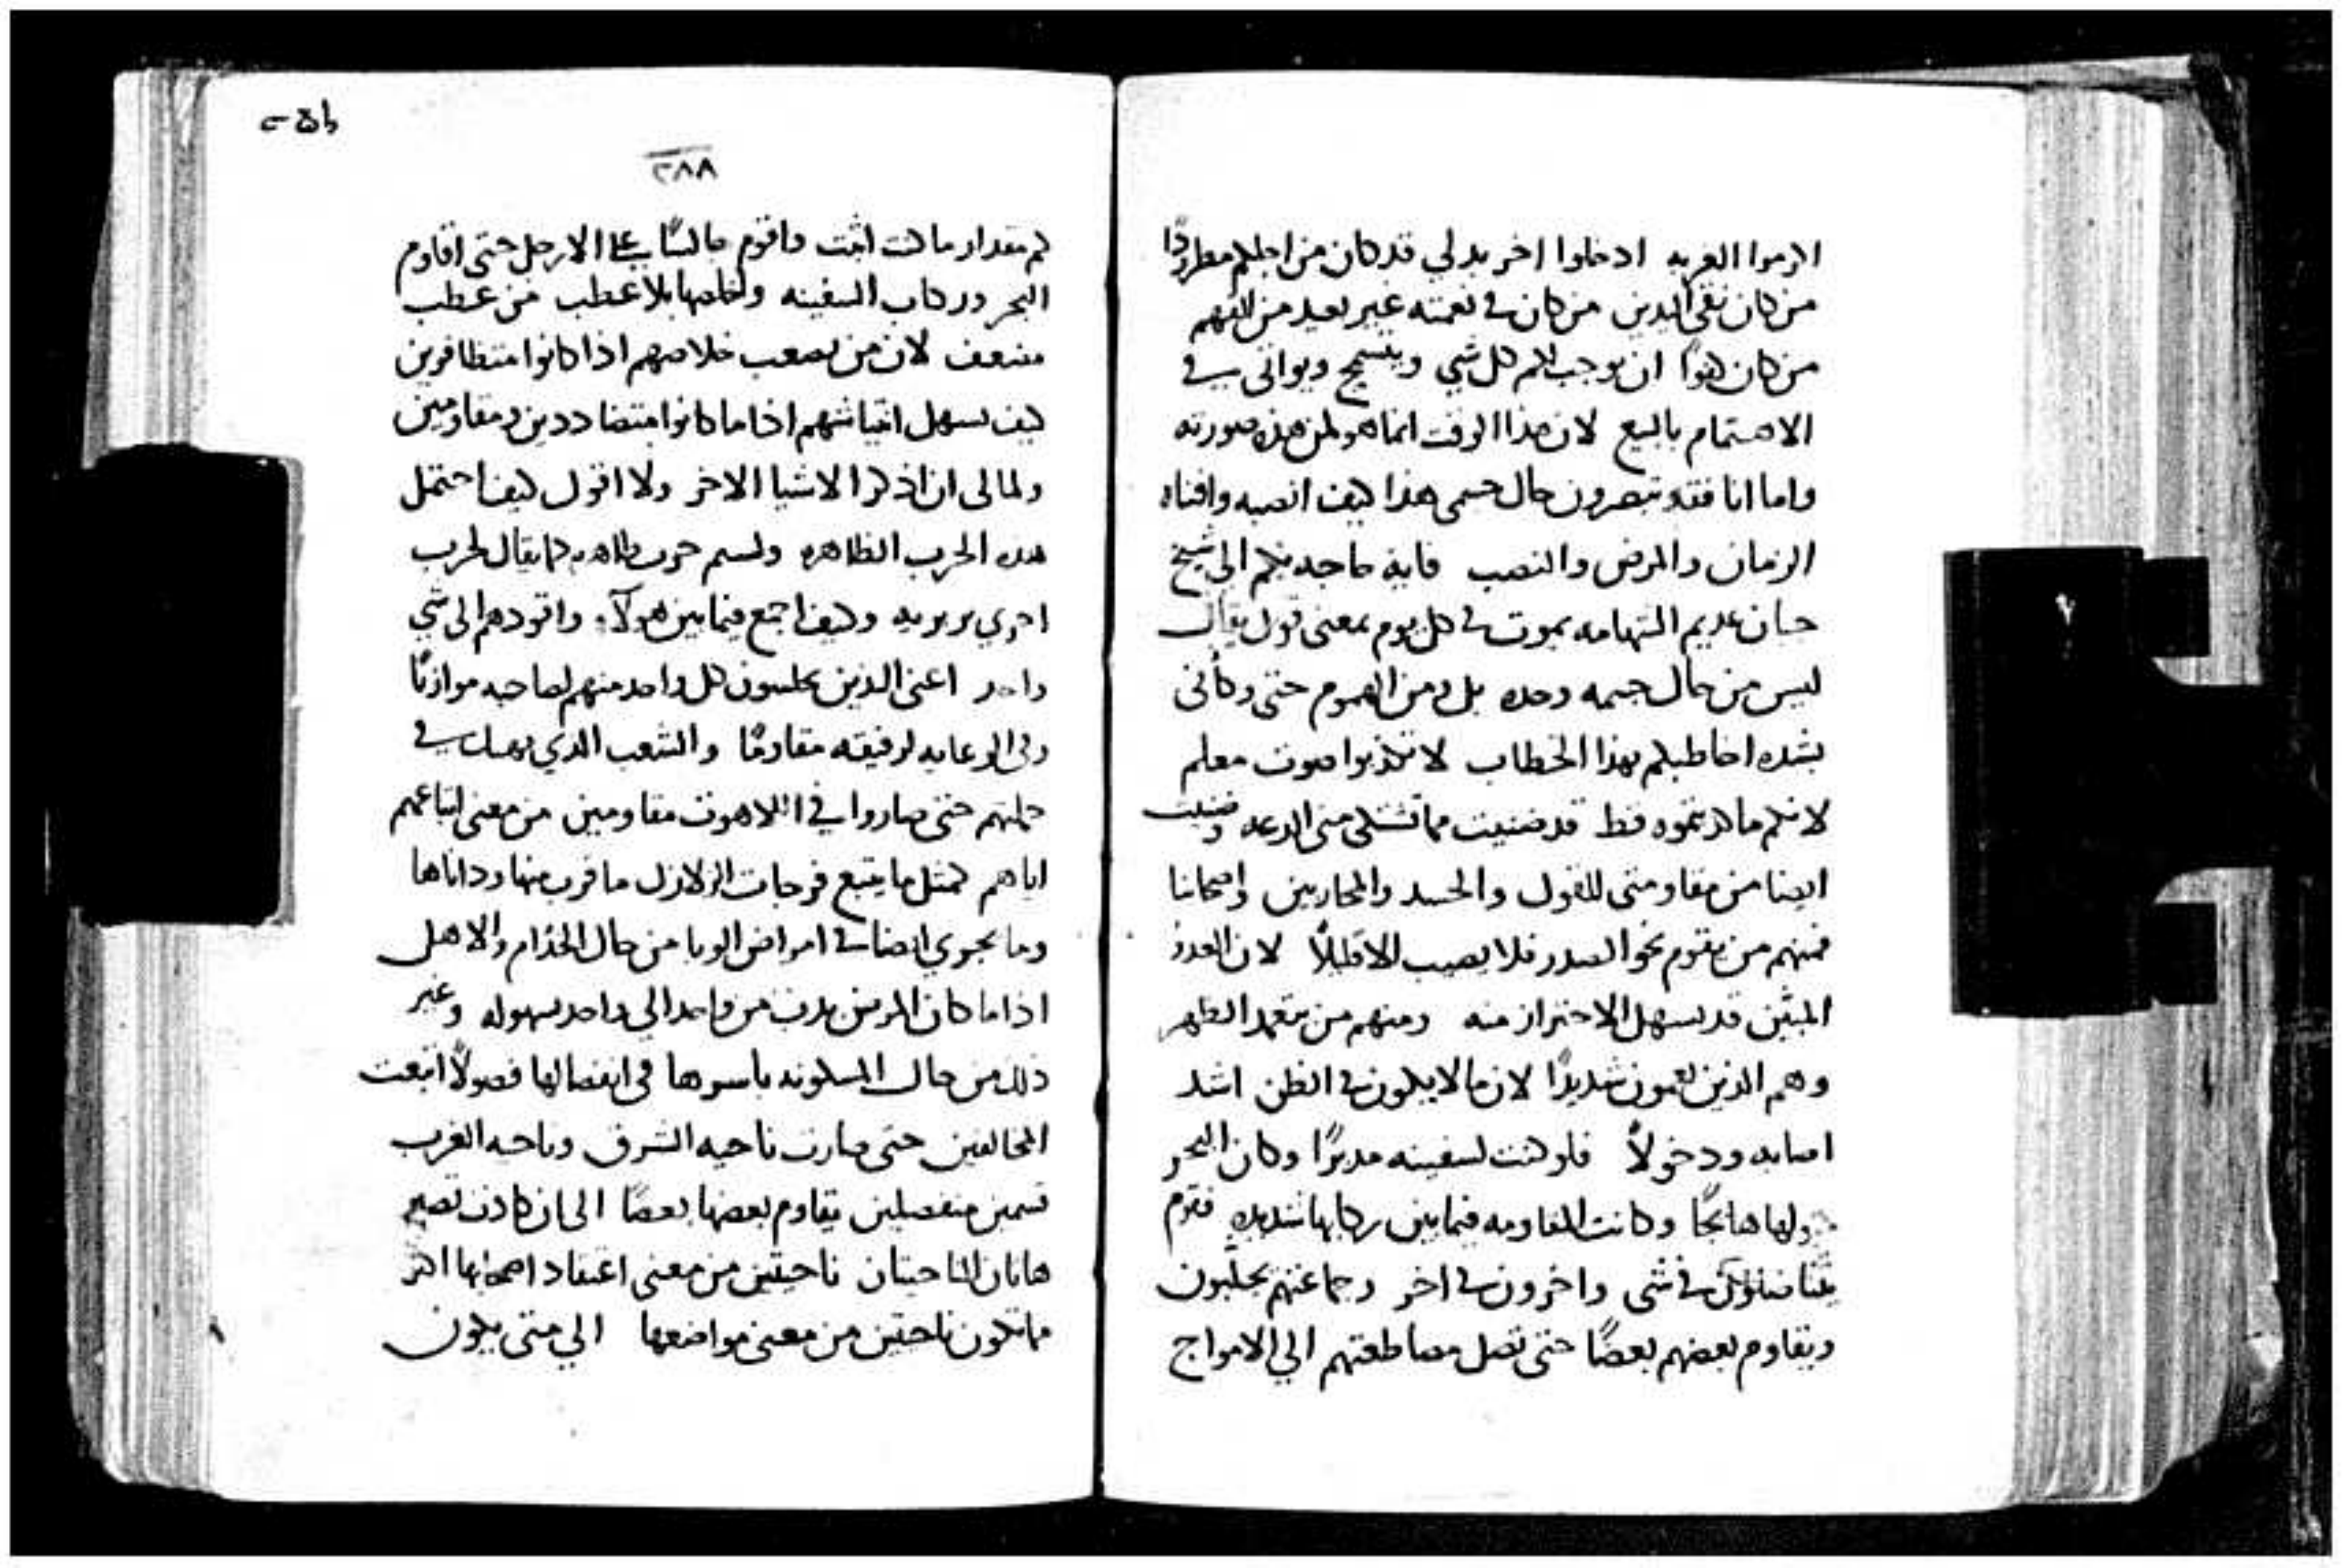 اكرموا الغربه ادخلوا اخر بدلي قد كان من اجلكم مطرودًا
من كان نقي اليدين من كان في نغمته غير بعيد من الفهم
من كان كفوًا ان يوجب لكم كل شي ويتسمح ويواتى في
الاهتمام بالبيع لان هذا الوقت انما هو لمن هذه صورته
واما انا فقد تبصرون حال جسمى هذا كيف انصبه وافناه
الزمان والمرض والنصب فايه حاجه بكم الى شيخ
جبان عديم الشهامه يموت في كل يوم بمعنى قول يقال
ليس من حال جسمه وحده بل ومن الهموم حتى وكأنى
بشده اخاطبكم بهذا الخطاب لا تكذبوا صوت معلم
لانكم ما كذبتموه قط قد ضنيت مما تشتكى منى الدعه وضنيت
ايضا من مقاومتى للقول والحسد والمحاربين واصحابنا
فمنهم من يقوم نحو الصدر فلا يصيب الا قليلًا لان العدو
المبين قد يسهل الاحتراز منه ومنهم من يتعمد الظهر
وهم الذين يغمون شديدًا لان ما لا يكون في الظن اشد
اصابه ودخولًا فلو كنت لسفينه مدبرًا وكان البحر
حولها هايجًا وكانت المقاومه فيما بين ركابها شديده فقوم
يتنافسون في شى واخرون في اخر وجماعتهم يجلبون
ويقاوم بعضهم بعضًا حتى تصل مصاطعتهم الي الامواج
٢٨٨
كم مقدار ما كنت اثبت واقوم جالسًا على الارجل حتى اقاوم
البحر وركاب السفينه واخلصها بلا عطب من عطب
مضعف لان من يصعب خلاصهم اذا كانوا متظافرين
كيف يسهل انتياشهم اذا ما كانوا متضاددين ومقاومين
ولما لى ان اذكر الاشيا الاخر ولا اقول كيف احتمل
هذه الحرب الظاهره ولسم حرب طاهره كما يقال لحرب
اخري بربريه وكيف اجمع فيما بين هولآء واقودهم الى شي
واحد اعنى الذين يجلسون كل واحد منهم لصاحبه موازنًا
وفى الرعايه لرفيقه مقاومًا والشعب الذي يميل في
جملتهم حتى صاروا في اللاهوت مقاومين من معنى اتباعهم
اياهم كمثل ما يتبع فرجات الزلازل ما قرب منها وداناها
وما يجري ايضا في امراض الوبا من حال الخدام والاهل
اذا ما كان المرض يدب من واحد الي واحد بسهوله وغير
ذلك من حال المسكونه باسرها في انفصالها فصولًا اتبعت
المخالفين حتى صارت ناحيه الشرق وناحيه الغرب
قسمين منفصلين يقاوم بعضها بعضًا الى ان كادت تصير
هاتان الناحيتان ناحيتين من معنى اعتقاد اصحابها اكثر
مما تكون ناحيتين من معنى مواضعها الي متى يكون